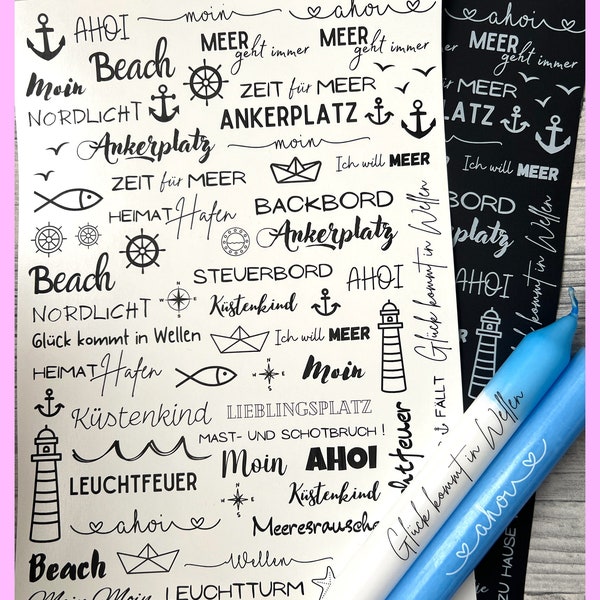 AHOI moin ahoi
MEER geht immer MEER geht immer
Moin Beach
ZEIT für MEER
NORDLICHT ANKERPLATZ
Ankerplatz moin
Ich will MEER
ZEIT für MEER
HEIMAT Hafen BACKBORD
Ankerplatz
Beach STEUERBORD AHOI
NORDLICHT Küstenkind
Glück kommt in Wellen
Glück kommt in Wellen Ich will MEER
HEIMAT Hafen Moin
Küstenkind LIEBLINGSPLATZ
MAST- UND SCHOTBRUCH !
LEUCHTFEUER Moin AHOI
Küstenkind
ahoi Meeresrausche
Beach Wellen
Moin Moin LEUCHTTURM
FÄLLT
ahoi
MEER geht immer
ZEIT für MEER
Ich will MEER
Glück kommt in Wellen
AHOI
ZU HAUSE
Glück kommt in Wellen
ahoi